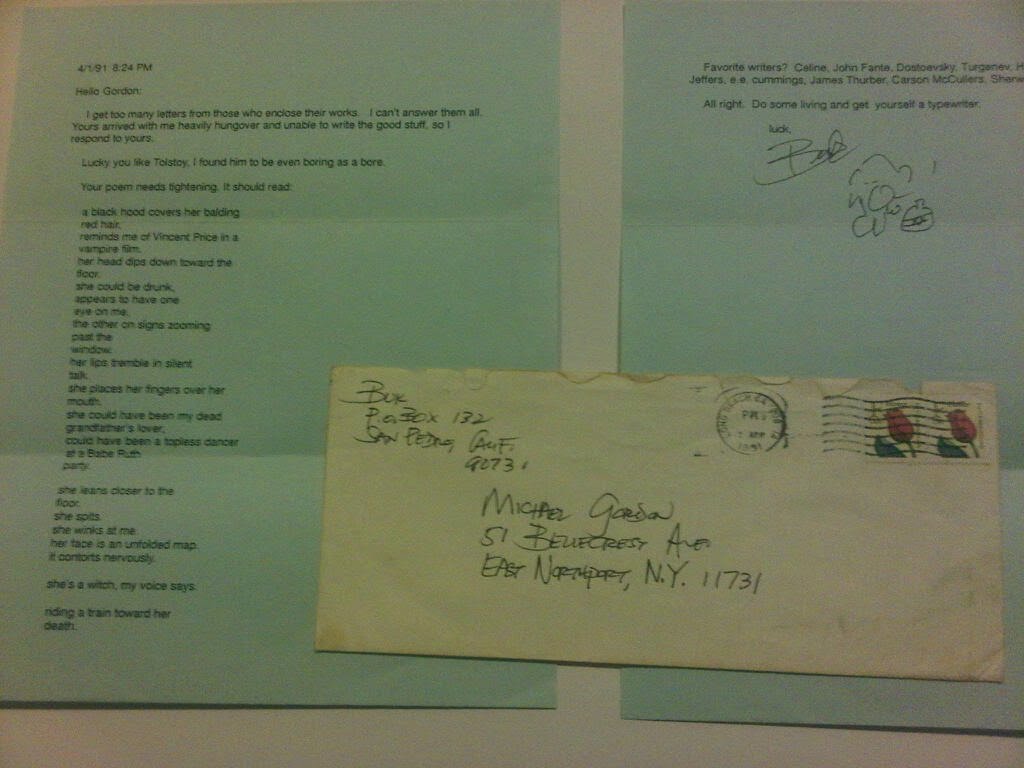 4/1/91 8:24 PM
Hello Gordon:
I get too many letters from those who enclose their works. I can't answer them all.
Yours arrived with me heavily hungover and unable to write the good stuff, so I
respond to yours.
Lucky you like Tolstoy, I found him to be even boring as a bore.
Your poem needs tightening. It should read:
a black hood covers her balding
red hair,
reminds me of Vincent Price in a
vampire film.
her head dips down toward the
floor.
she could be drunk,
appears to have one
eye on me,
the other on signs zooming
past the
window.
her lips tremble in silent
talk.
she places her fingers over her
mouth.
she could have been my dead
grandfather's lover,
could have been a topless dancer
at a Babe Ruth
party.
she leans closer to the
floor.
she spits.
she winks at me.
her face is an unfolded map.
it contorts nervously.
she's a witch, my voice says.
riding a train toward her
death.
Favorite writers? Celine, John Fante, Dostoevsky, Turgenev, H
Jeffers, e.e. cummings, James Thurber, Carson McCullers, Sherw
All right. Do some living and get yourself a typewriter.
luck,
Buk
Buk
P.O. Box 132
San Pedro, Calif.
90731
LONG BEACH CA
PM
APR
1991
Michael Gordon
51 Bellecrest Ave.
East Northport, N.Y. 11731